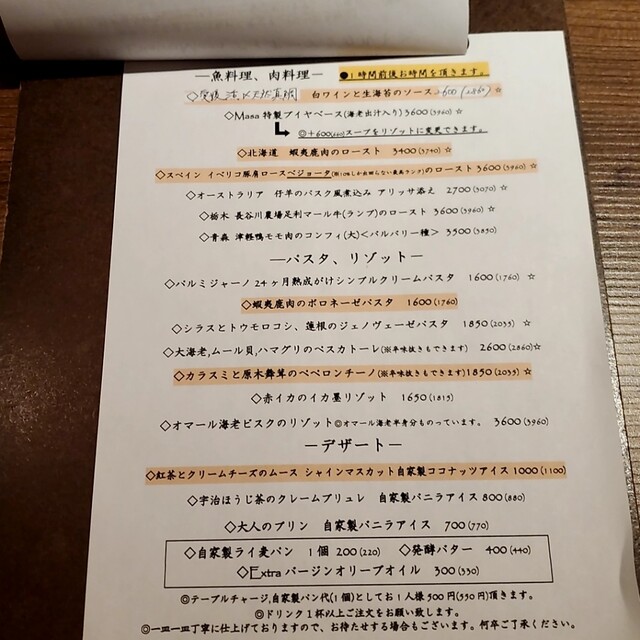 ―魚料理、肉料理― ●1時間前後お時間を頂きます。
白ワインと生海苔のソース 2600(2860) ☆
◇Masa 特製ブイヤベース(海老出汁入り)3600(3960) ☆
◎+600(660)スープをリゾットに変更できます。
◇北海道 蝦夷鹿肉のロースト 3400(3740) ☆
◇スペイン イベリコ豚肩ロースベジョータ(※10%しか出回らない最高ランク)のロースト 3600(3960) ☆
◇オーストラリア 仔羊のバスク風煮込み アリッサ添え 2700(3070) ☆
◇栃木 長谷川農場足利マール牛(ランプ)のロースト 3600(3960) ☆
◇青森 津軽鴨モモ肉のコンフィ(大)<バルバリー種> 3500(3850)
―パスタ、リゾット―
◇パルミジャーノ 24ヶ月熟成がけシンプルクリームパスタ 1600(1760) ☆
◇蝦夷鹿肉のボロネーゼパスタ 1600(1760)
◇シラスとトウモロコシ、蓮根のジェノヴェーゼパスタ 1850(2035) ☆
◇大海老,ムール貝,ハマグリのペスカトーレ(※辛味抜きもできます) 2600(2860)☆
◇カラスミと原木舞茸のペペロンチーノ(※辛味抜きもできます)1850(2035) ☆
◇赤イカのイカ墨リゾット 1650(1815)
◇オマール海老ビスクのリゾット◎オマール海老半身分ものっています。 3600(3960)
―デザート―
◇紅茶とクリームチーズのムース シャインマスカット自家製ココナッツアイス 1000(1100)
◇宇治ほうじ茶のクレームブリュレ 自家製バニラアイス 800(880)
◇大人のプリン 自家製バニラアイス 700(770)
◇自家製ライ麦パン 1個 200(220) ◇発酵バター 400(440)
◇Extra バージンオリーブオイル 300(330)
◎テーブルチャージ,自家製パン代(1個)としてお1人様500円(550円)頂きます。
◎ドリンク1杯以上ご注文をお願い致します。
◎一皿一皿丁寧に仕上げておりますので、お待たせする場合もございます。何卒ご了承ください。